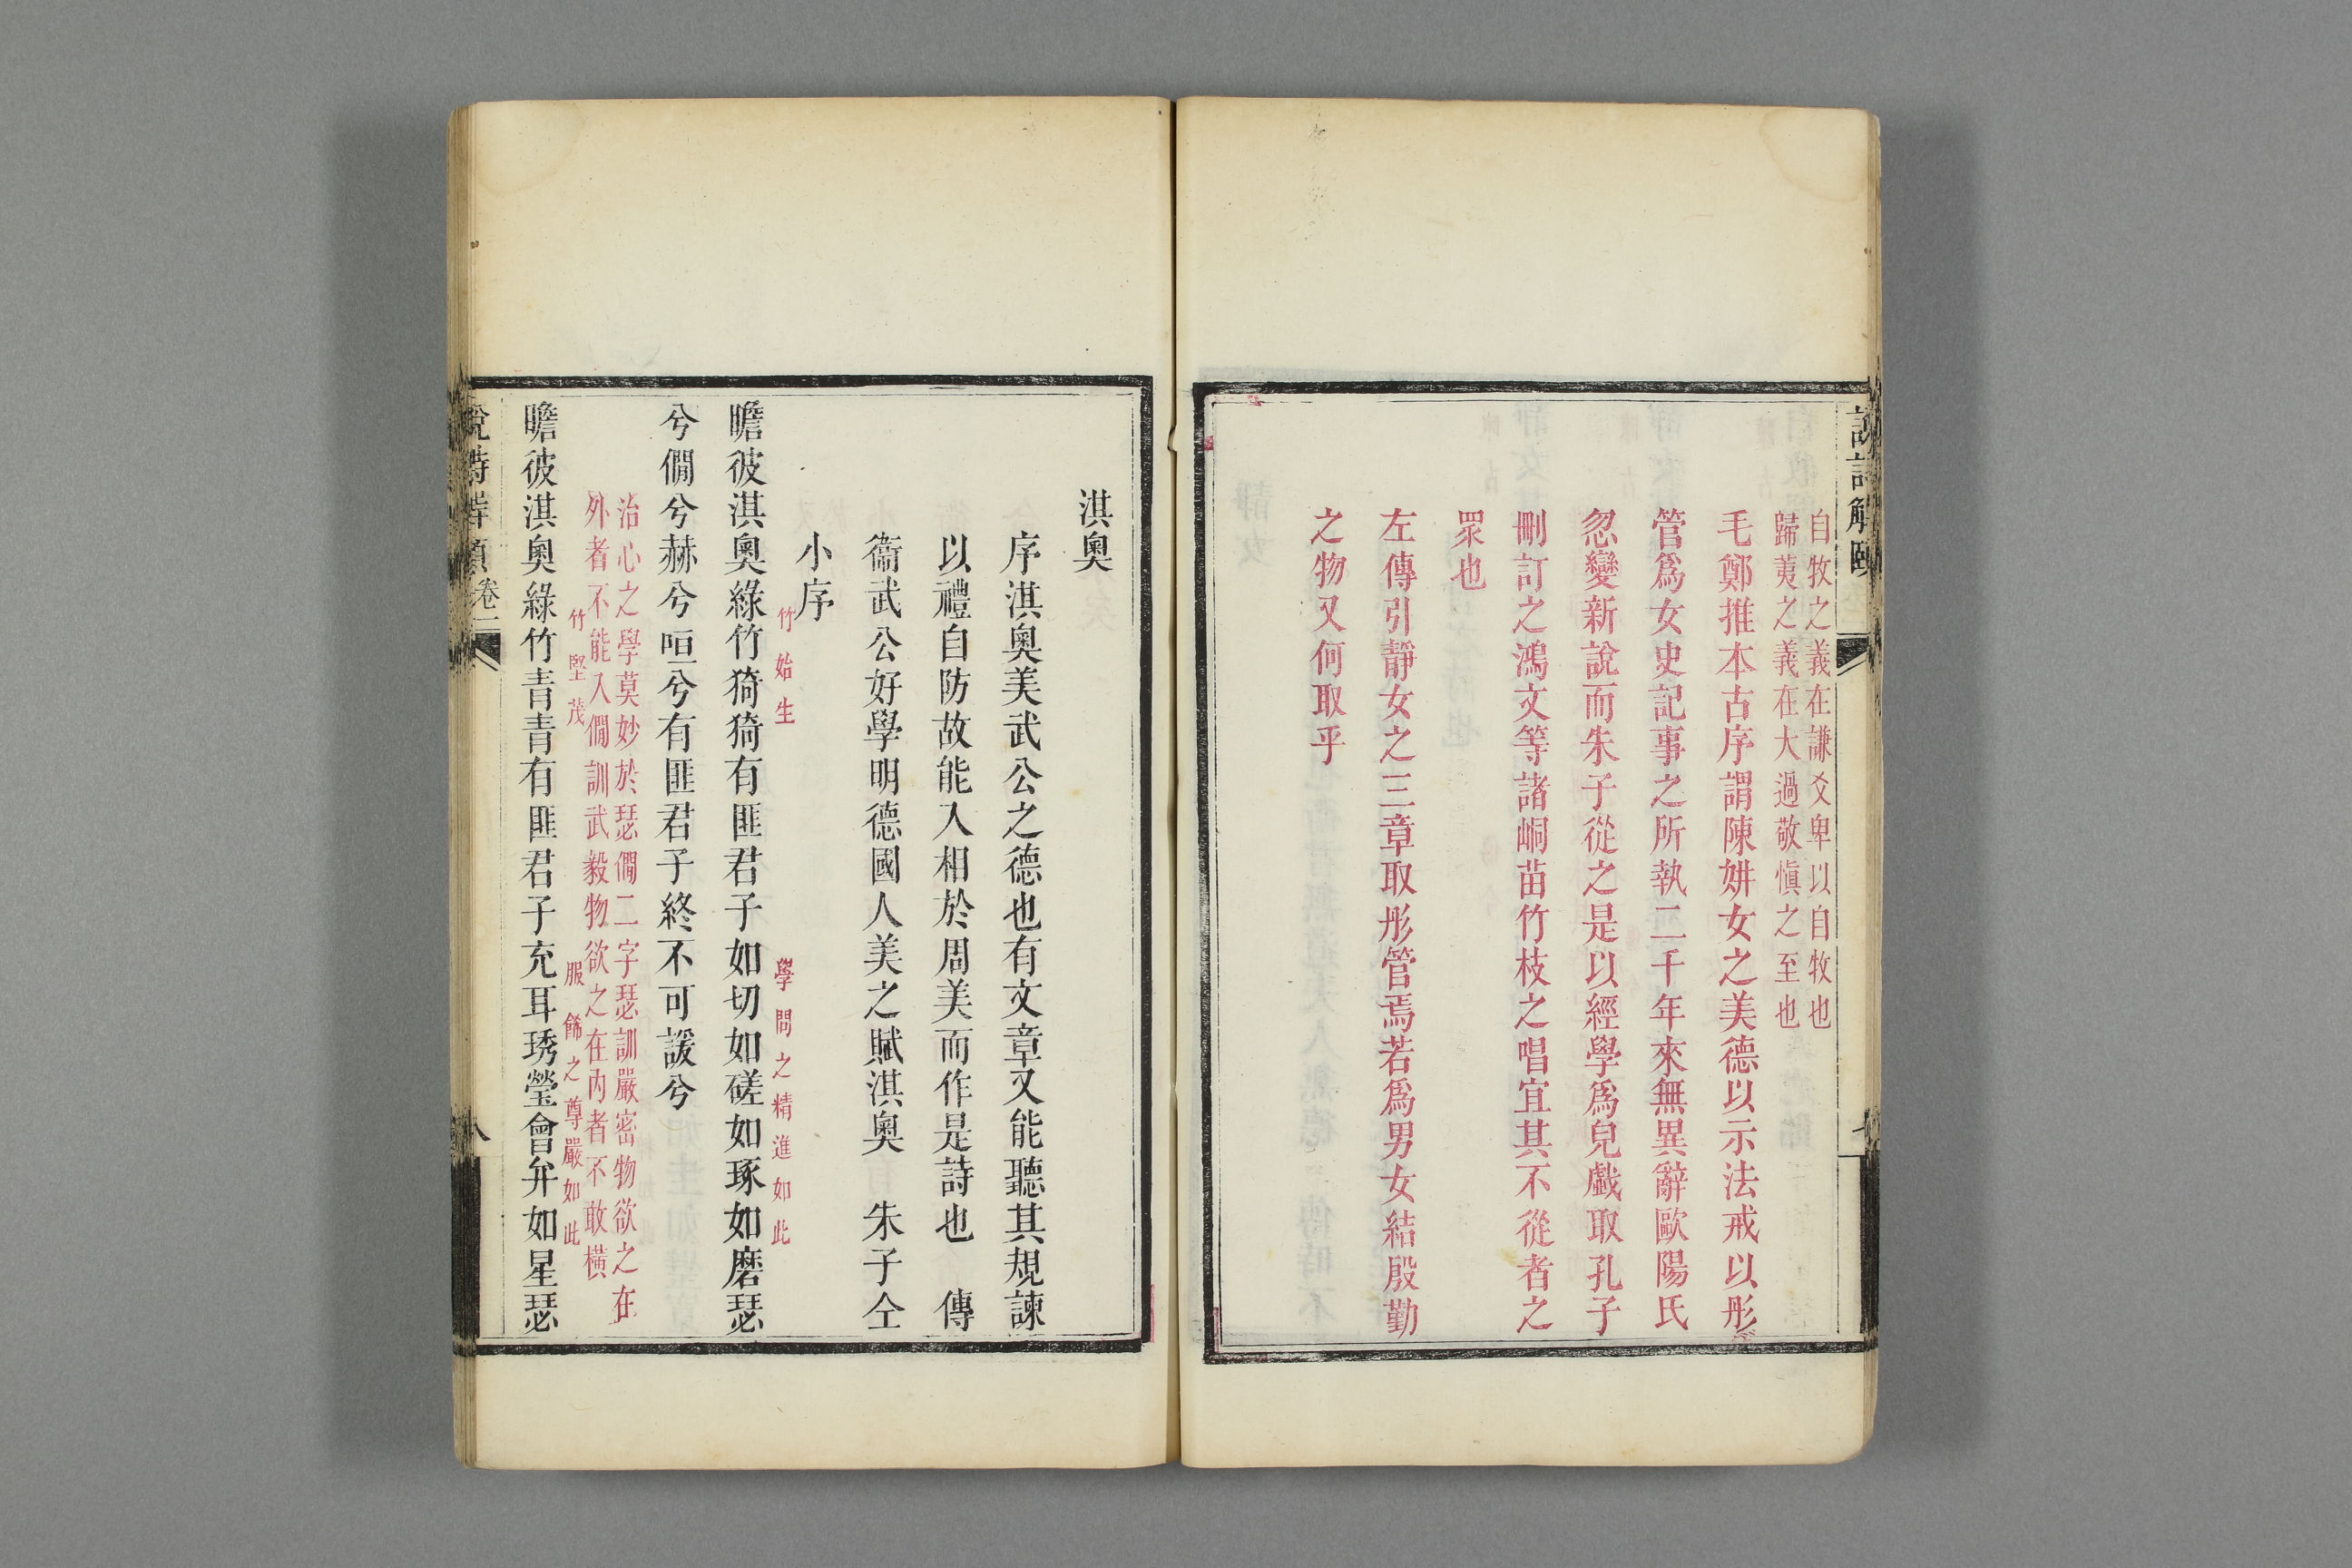 說詩解頤
自牧之義在謙爻卑以自牧也
歸荑之義在大過敬慎之至也
毛鄭推本古序謂陳姘女之美德以示法戒以彤
管爲女史記事之所執二千年來無異辭歐陽氏
忽變新說而朱子從之是以經學爲兒戲取孔子
刪訂之鴻文等諸峒苗竹枝之唱宜其不從者之
眾也
左傳引靜女之三章取彤管焉若爲男女結殷勤
之物又何取乎
淇奧
序淇奧美武公之德也有文章又能聽其規諫
以禮自防故能入相於周美而作是詩也　傳
衞武公好學明德國人美之賦淇奧　朱子仝
小序
竹始生　學問之精進如此
瞻彼淇奧綠竹猗猗有匪君子如切如磋如琢如磨瑟
兮僩兮赫兮咺兮有匪君子終不可諼兮
治心之學莫妙於瑟僩二字瑟訓嚴密物欲之在
外者不能入僩訓武毅物欲之在內者不敢橫
竹堅茂　服飾之尊嚴如此
瞻彼淇奧綠竹青青有匪君子充耳琇瑩會弁如星瑟
說詩解頤卷二
八